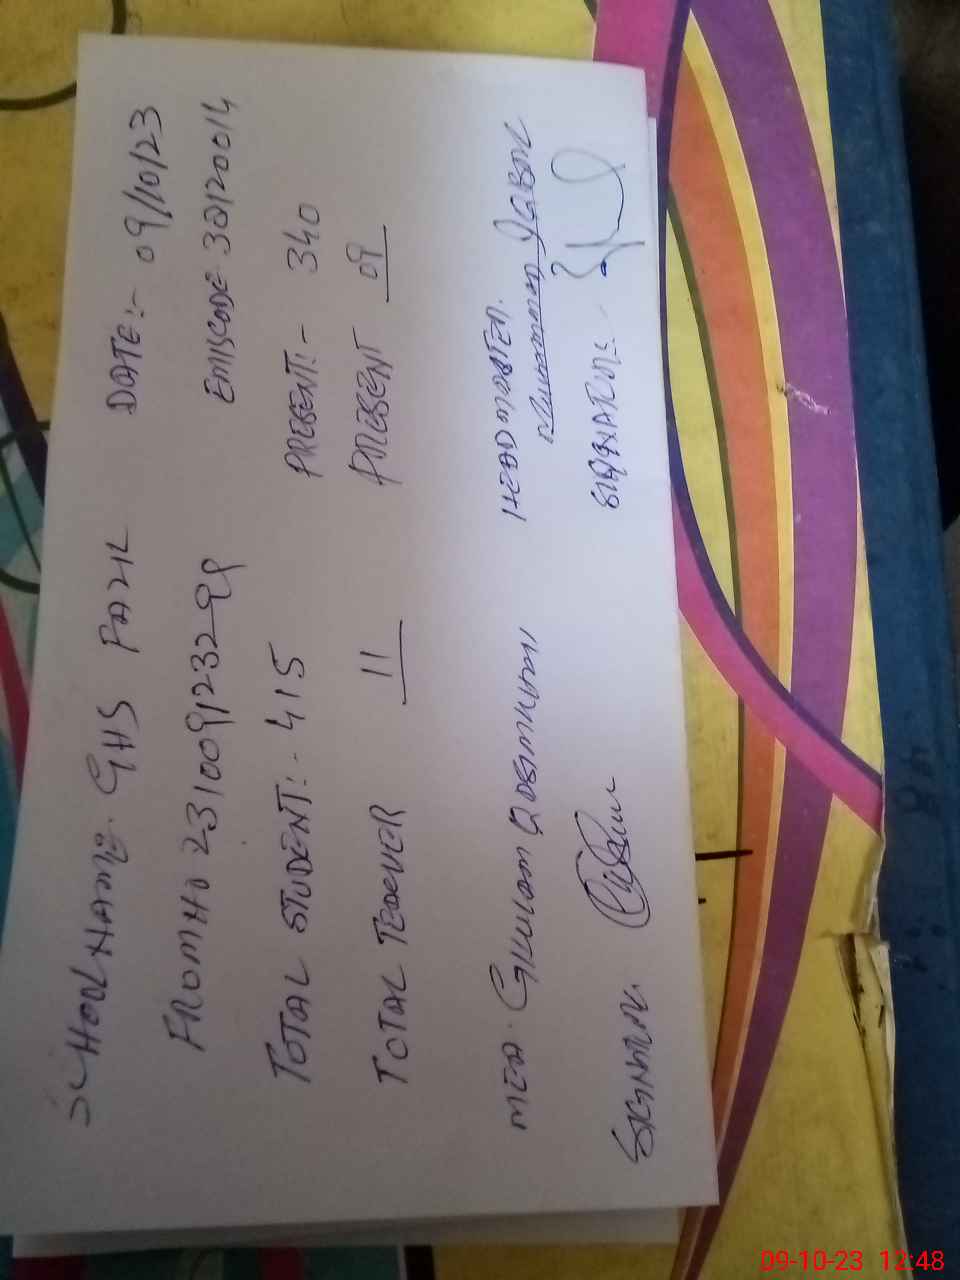 SCHOOL NAME:- GHS PAZIL DATE:- 09/10/23
FROM NO 231009123299 EMISCODE 30120014
TOTAL STUDENT:- 415 PRESENT:- 340
TOTAL TEACHER 11 PRESENT 09
MEA. GHULAM HEADMASTER.
MUHAMMAD
SIGNATURE. SIGNATURE:-
09-10-23 12:48